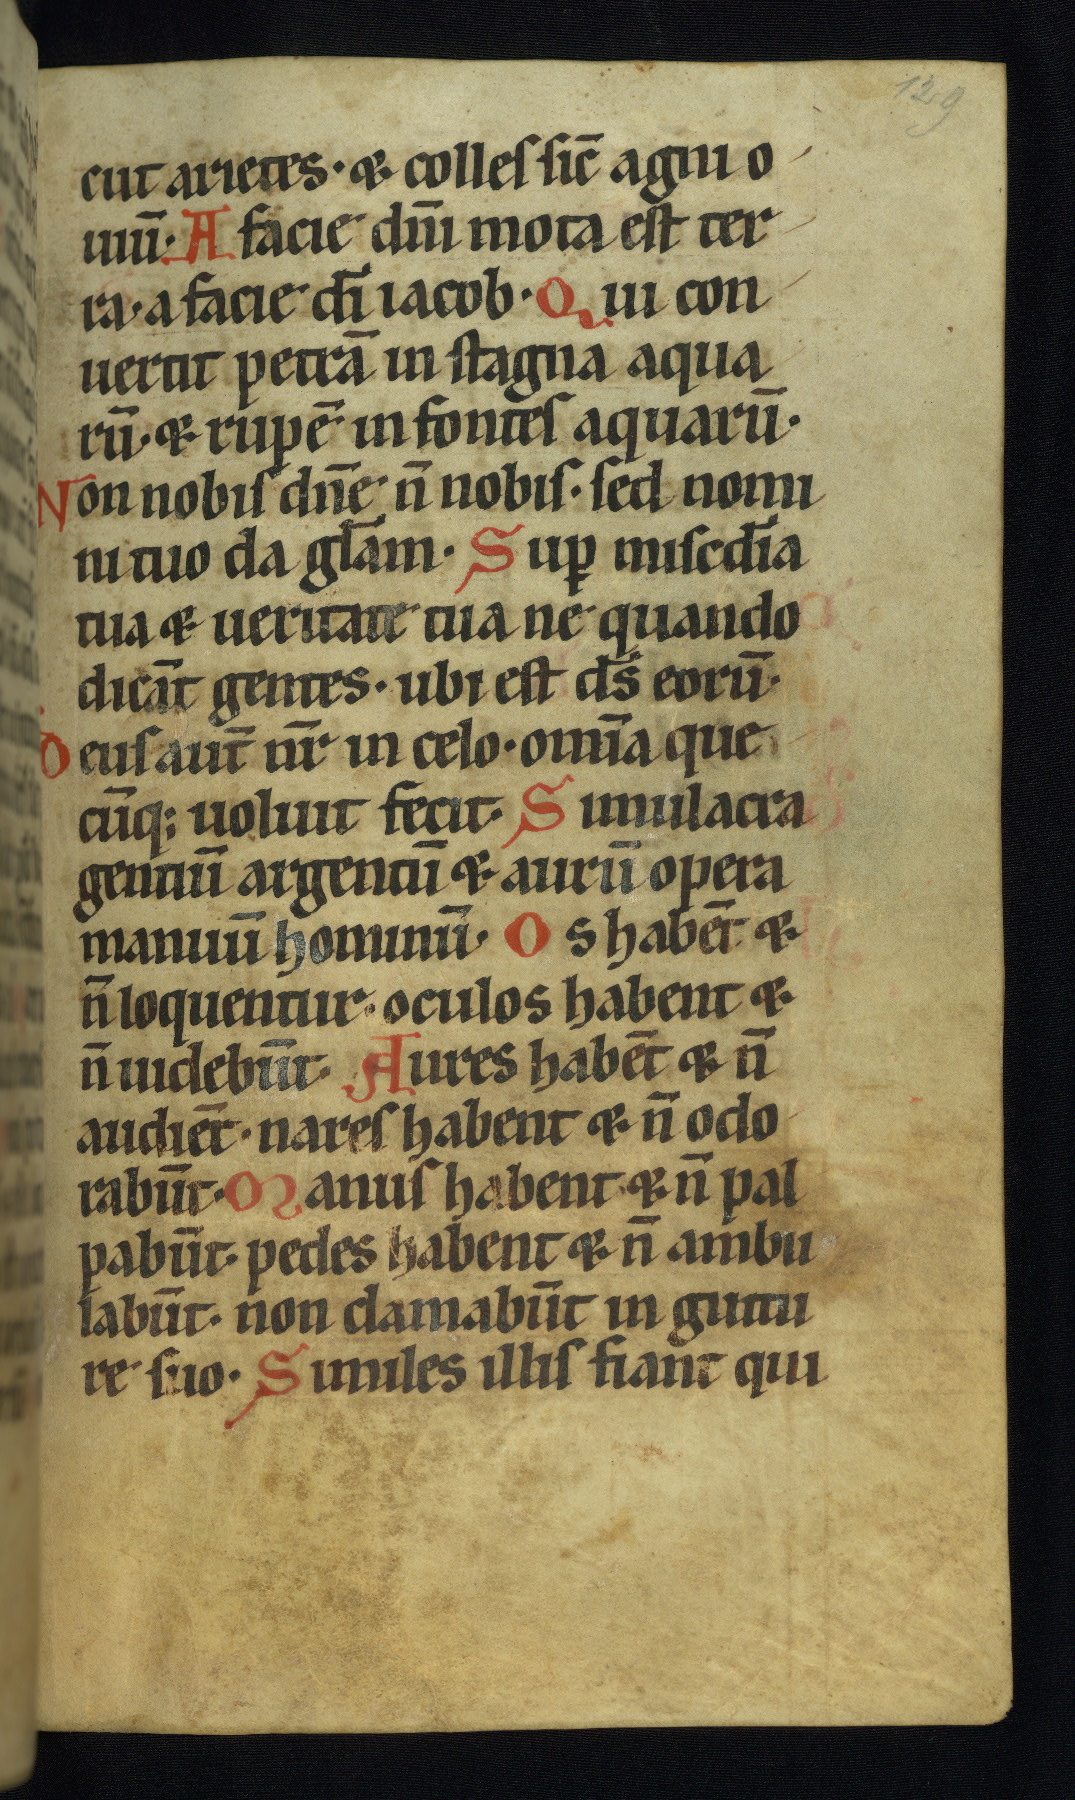 129
cut arietes· & colles sic̄ agni o
uiū· A facie dn̄i mota est ter
ra· a facie dī iacob· Qui con
uertit petrā in stagna aqua
rū· & rupē in fontes aquarū·
Non nobis dn̄e n̄ nobis· sed nomi
ni tuo da gl̄am· Sup̱ misc̄dia
tua & ueritate tua ne quando
dicāt gentes· ubi est d̄s eorū·
Deus aut̄ nr̄ in celo· omīa que
cūq; uoluit fecit· Simulacra
gentiū argentū & aurū opera
manuū hominū· Os habēt &
n̄ loquentur· oculos habent &
n̄ uidebūt· Aures habēt & n̄
audiēt· nares habent & n̄ odo
rabūt· Manus habent & n̄ pal
pabūt· pedes habent & n̄ ambu
labūt· non clamabūt in guttu
re suo· Similes illis fiant qui